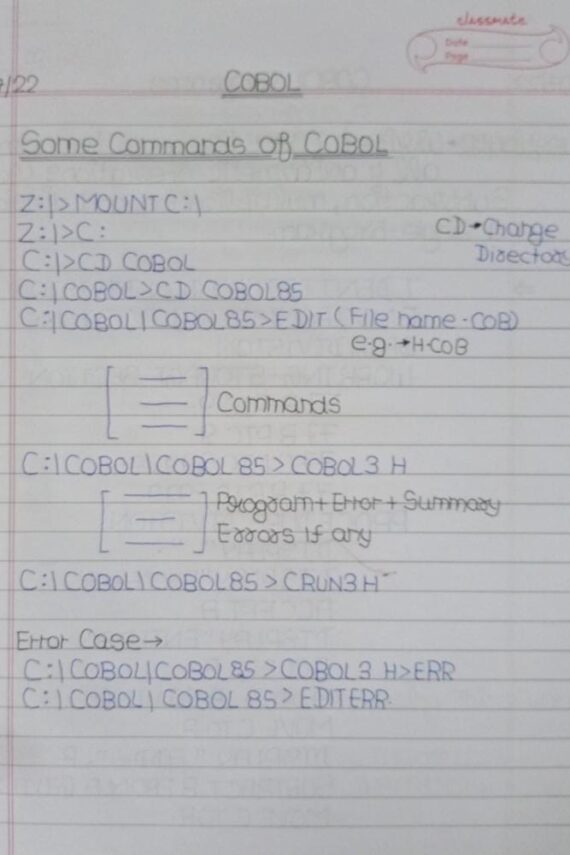 classmate
Date
Page
/22
COBOL
Some Commands of COBOL
Z:\>MOUNT C:\
Z:\>C:
CD→Change
Directory
C:\>CD COBOL
C:\COBOL>CD COBOL85
C:\COBOL\COBOL85>EDIT (File name.COB)
e.g.→H.COB
Commands
C:\COBOL\COBOL85>COBOL3 H
Program+Error+Summary
Errors if any
C:\COBOL\COBOL85>CRUN3 H
Error Case→
C:\COBOL\COBOL85>COBOL3 H>ERR
C:\COBOL\COBOL 85>EDITERR.